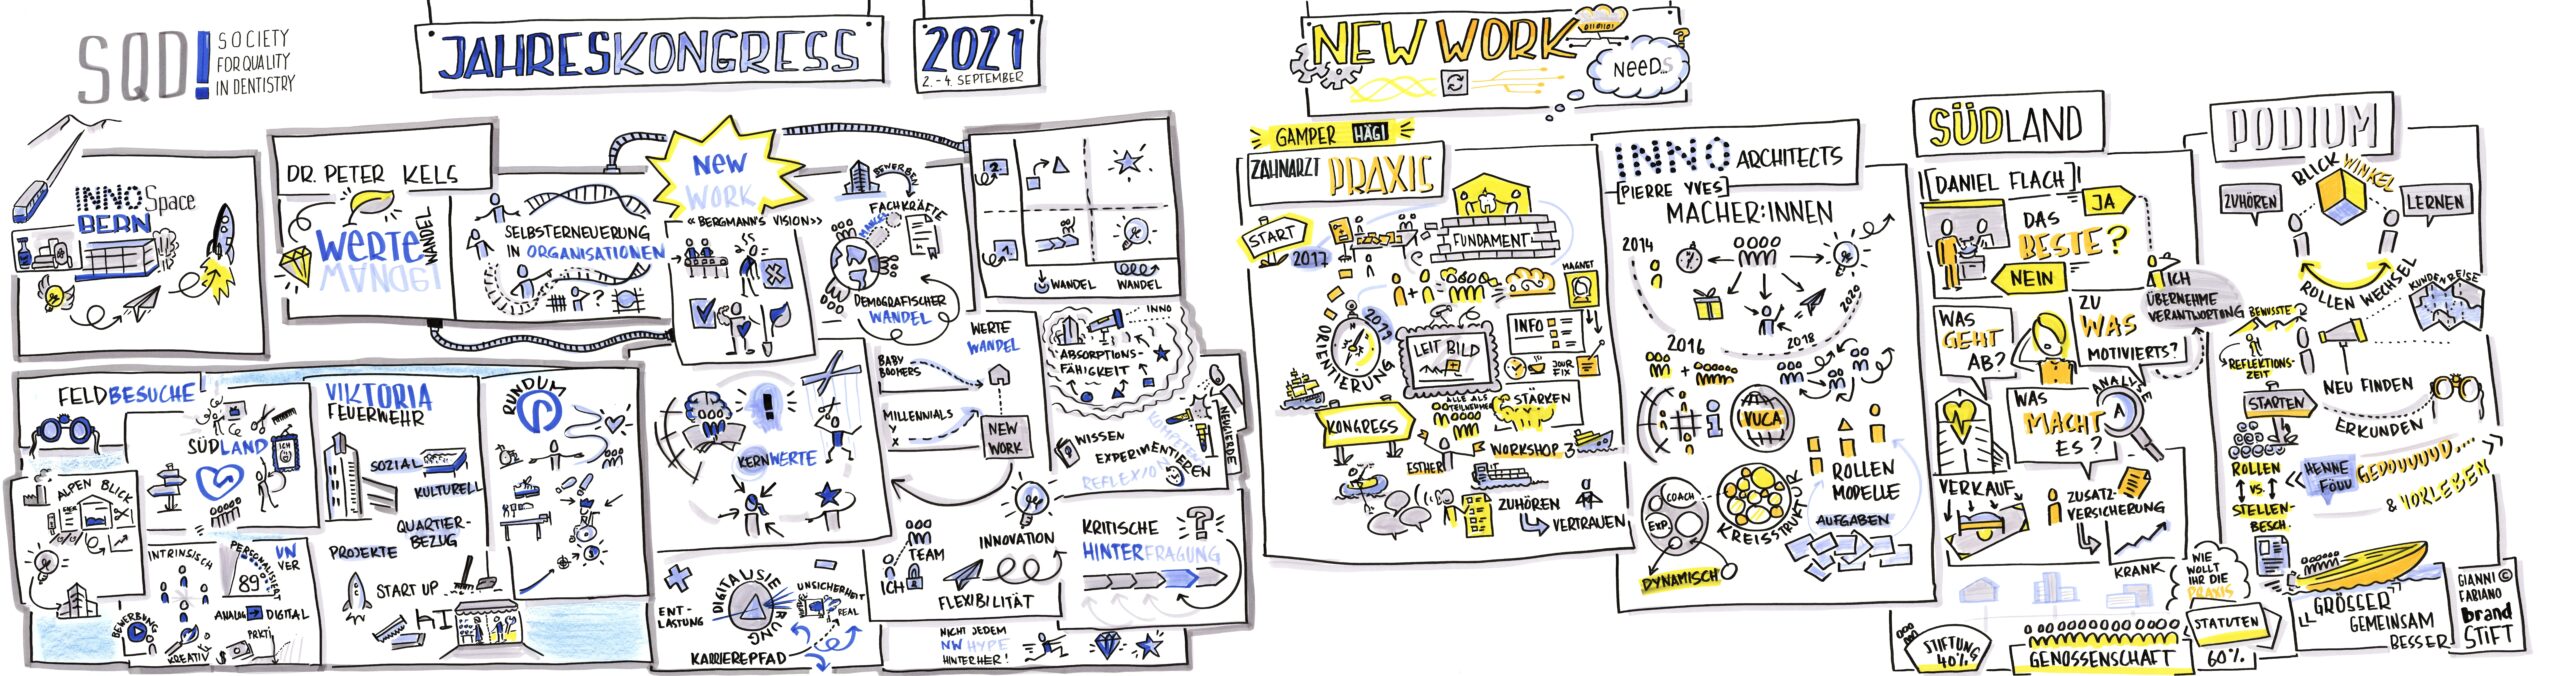 SQD!
SOCIETY
FOR QUALITY
IN DENTISTRY
JAHRESKONGRESS
2021
2.-4. SEPTEMBER
NEW WORK
NEEDS
?
INNO Space
BERN
DR. PETER KELS
WERTE
WANDEL
SELBSTERNEUERUNG
IN ORGANISATIONEN
?
NEW
WORK
«BERGMANN'S VISION»
BEWERBEN
FACHKRÄFTE
MANGEL
DEMOGRAFISCHER
WANDEL
2.
1.
WANDEL
WANDEL
WERTE
WANDEL
BABY
BOOMERS
MILLENNIALS
Y
X
NEW
WORK
INNO
ABSORPTIONS-
FÄHIGKEIT
WISSEN
EXPERIMENTIEREN
REFLEXION
KOMPETENZ
NEUGIERDE
KERNWERTE
TEAM
ICH
INNOVATION
FLEXIBILITÄT
KRITISCHE
HINTERFRAGUNG
?
DIGITALISIERUNG
ENT-
LASTUNG
UNSICHERHEIT
REAL
KARRIEREPFAD
NICHT JEDEM
NW HYPE
HINTERHER!
FELDBESUCHE
SÜDLAND
ICH
ALPEN BLICK
INTRINSISCH
PERSONALISIERT
UN
VER
89°
ANALOG
DIGITAL
BEWERBUNG
KREATIV
PRKTI
$
VIKTORIA
FEUERWEHR
SOZIAL
KULTURELL
QUARTIER-
BEZUG
PROJEKTE
START UP
KI
RUNDUM
GAMPER HÄGI
ZAHNARZT PRAXIS
START
2017
FUNDAMENT
MAGNET
2019
ORIENTIERUNG
LEIT BILD
INFO
JOUR
FIX
ALLE ALS
TEILNEHMER
STÄRKEN
KONGRESS
WORKSHOP 3
ESTHER
ZUHÖREN
VERTRAUEN
INNO ARCHITECTS
[PIERRE YVES]
MACHER:INNEN
2014
2020
2018
2016
VUCA
COACH
EXP.
DYNAMISCH
KREISSTRUKTUR
ROLLEN
MODELLE
AUFGABEN
SÜDLAND
[DANIEL FLACH]
JA
DAS
BESTE?
NEIN
ICH
ÜBERNEHME
VERANTWORTUNG
WAS
GEHT
AB?
ZU
WAS
MOTIVIERTS?
WAS
MACHT
ES?
ANALYSE
A
VERKAUF
ZUSATZ-
VERSICHERUNG
KRANK
STIFTUNG
40%
GENOSSENSCHAFT
60%
STATUTEN
WIE
WOLLT
IHR DIE
PRAXIS
PODIUM
BLICKWINKEL
ZUHÖREN
LERNEN
ROLLEN WECHSEL
KUNDENREISE
BEWUSSTE
REFLEKTIONS-
ZEIT
NEU FINDEN
STARTEN
ERKUNDEN
ROLLEN
VS.
STELLEN-
BESCH.
HENNE
FÖUU
GEDUUUUUD....
& VORLEBEN
GRÖSSER
GEMEINSAM
BESSER
GIANNI ©
FABIANO
brand
STiFT